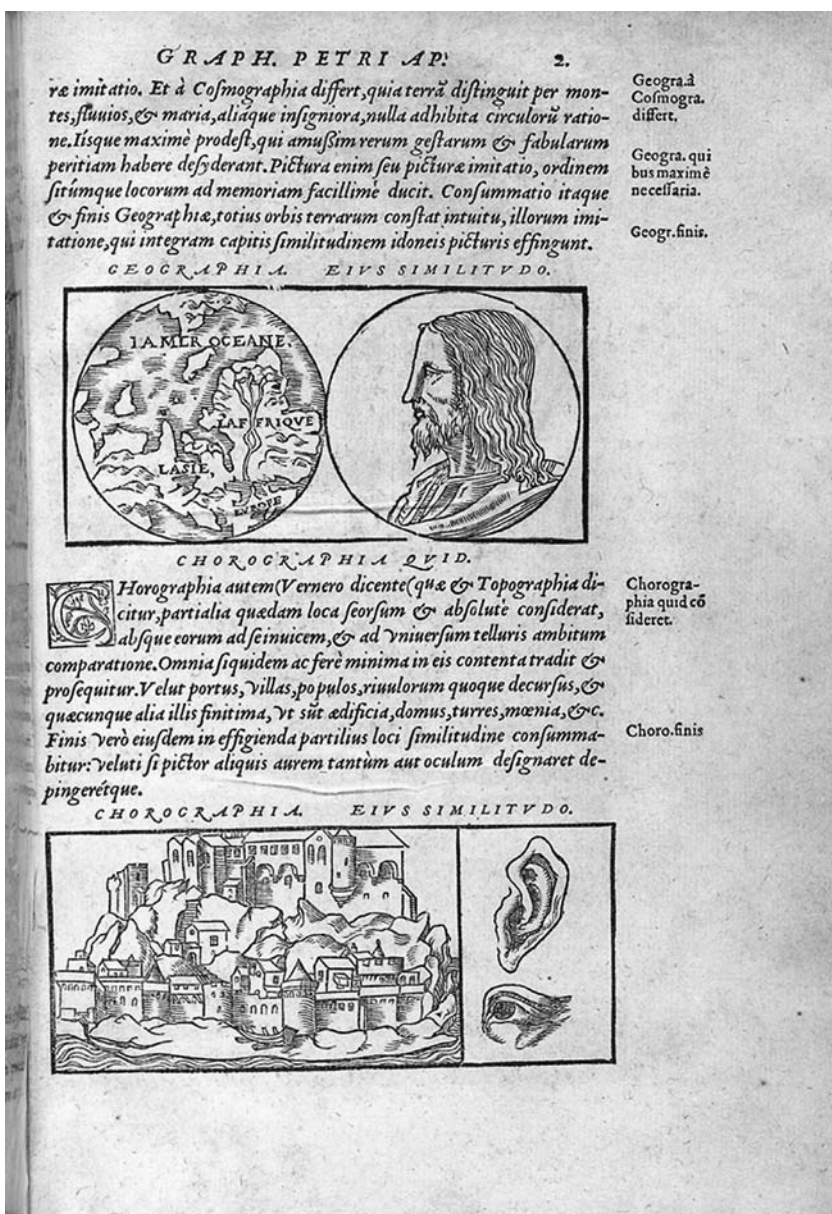 GRAPH. PETRI AP. 2.
ræ imitatio. Et à Coſmographia differt, quia terrã diſtinguit per mon-
tes, fluuios, & maria, aliáque inſigniora, nulla adhibita circulorũ ratio-
ne. Iíſque maximè prodeſt, qui amuſſim rerum geſtarum & fabularum
peritiam habere deſyderant. Pictura enim ſeu picturæ imitatio, ordinem
ſitúmque locorum ad memoriam facillimè ducit. Conſummatio itaque
& finis Geographiæ, totius orbis terrarum conſtat intuitu, illorum imi-
tatione, qui integram capitis ſimilitudinem idoneis picturis effingunt.
Geogra. à
Coſmogra.
differt.
Geogra. qui
bus maximè
neceſſaria.
Geogr. finis.
GEOGRAPHIA. EIVS SIMILITVDO.
IAMER OCEANE.
LAFFRIQVE
LASIE,
EVROPE
CHOROGRAPHIA QVID.
CHorographia autem (Vernero dicente (quæ & Topographia di-
citur, partialia quædam loca ſeorſum & abſolutè conſiderat,
abſque eorum ad ſeinuicem, & ad vniuerſum telluris ambitum
comparatione. Omnia ſiquidem ac ferè minima in eis contenta tradit &
proſequitur. Velut portus, villas, populos, riuulorum quoque decurſus, &
quæcunque alia illis finitima, vt sũt ædificia, domus, turres, mœnia, &c.
Finis verò eiuſdem in effigienda partilius loci ſimilitudine conſumma-
bitur: veluti ſi pictor aliquis aurem tantùm aut oculum deſignaret de-
pingerétque.
Chorogra-
phia quid cõ
ſideret.
Choro. finis
CHOROGRAPHIA. EIVS SIMILITVDO.